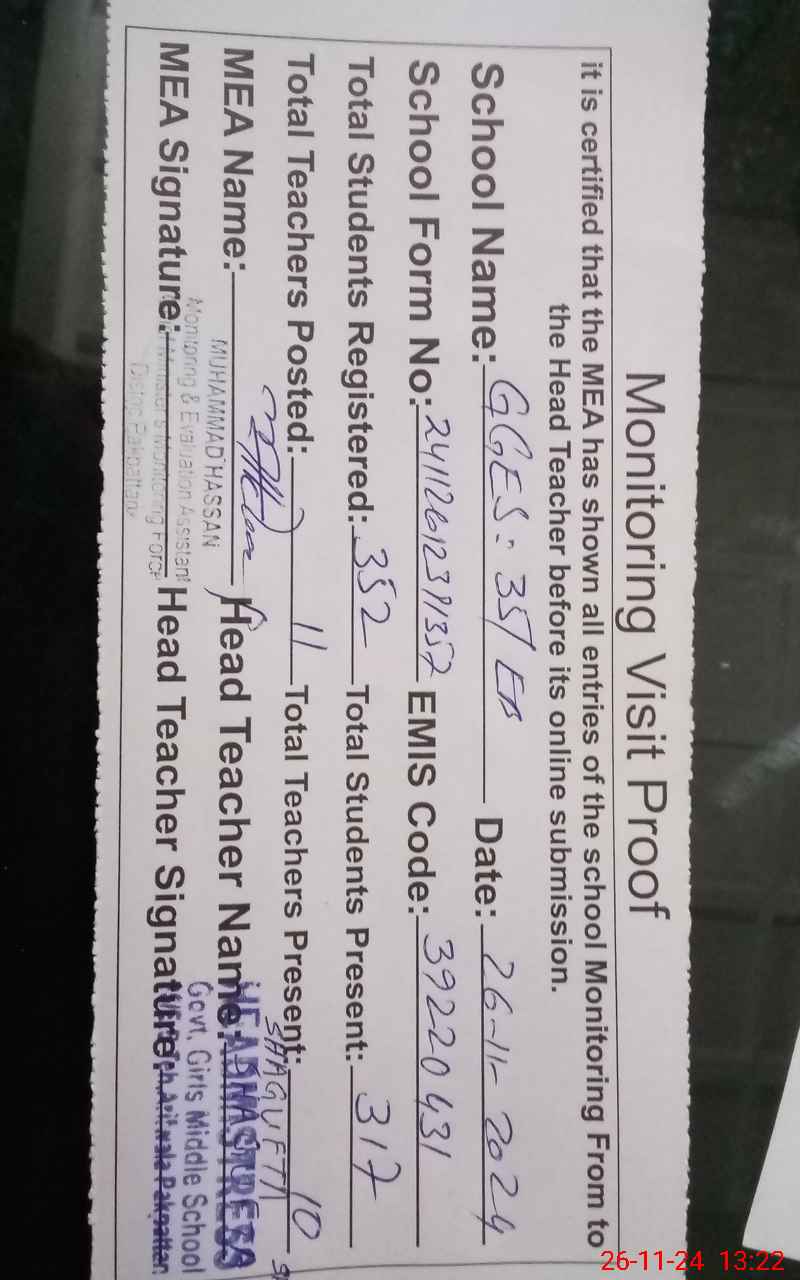 Monitoring Visit Proof
it is certified that the MEA has shown all entries of the school Monitoring From to
the Head Teacher before its online submission.
School Name: GGES: 351 EB Date: 26-11-2024
School Form No: EMIS Code: 39220431
Total Students Registered: 352 Total Students Present: 317
Total Teachers Posted: 11 Total Teachers Present: 10
MEA Name: Head Teacher Name: SHAGUFTA
MUHAMMAD HASSAN
HEADMISTRESS
Monitoring & Evaluation Assistant
Govt. Girls Middle School
MEA Signature: Head Teacher Signature:
Monitoring Force
Arif wala Pakpattan
Distric Pakpattan
26-11-24 13:22